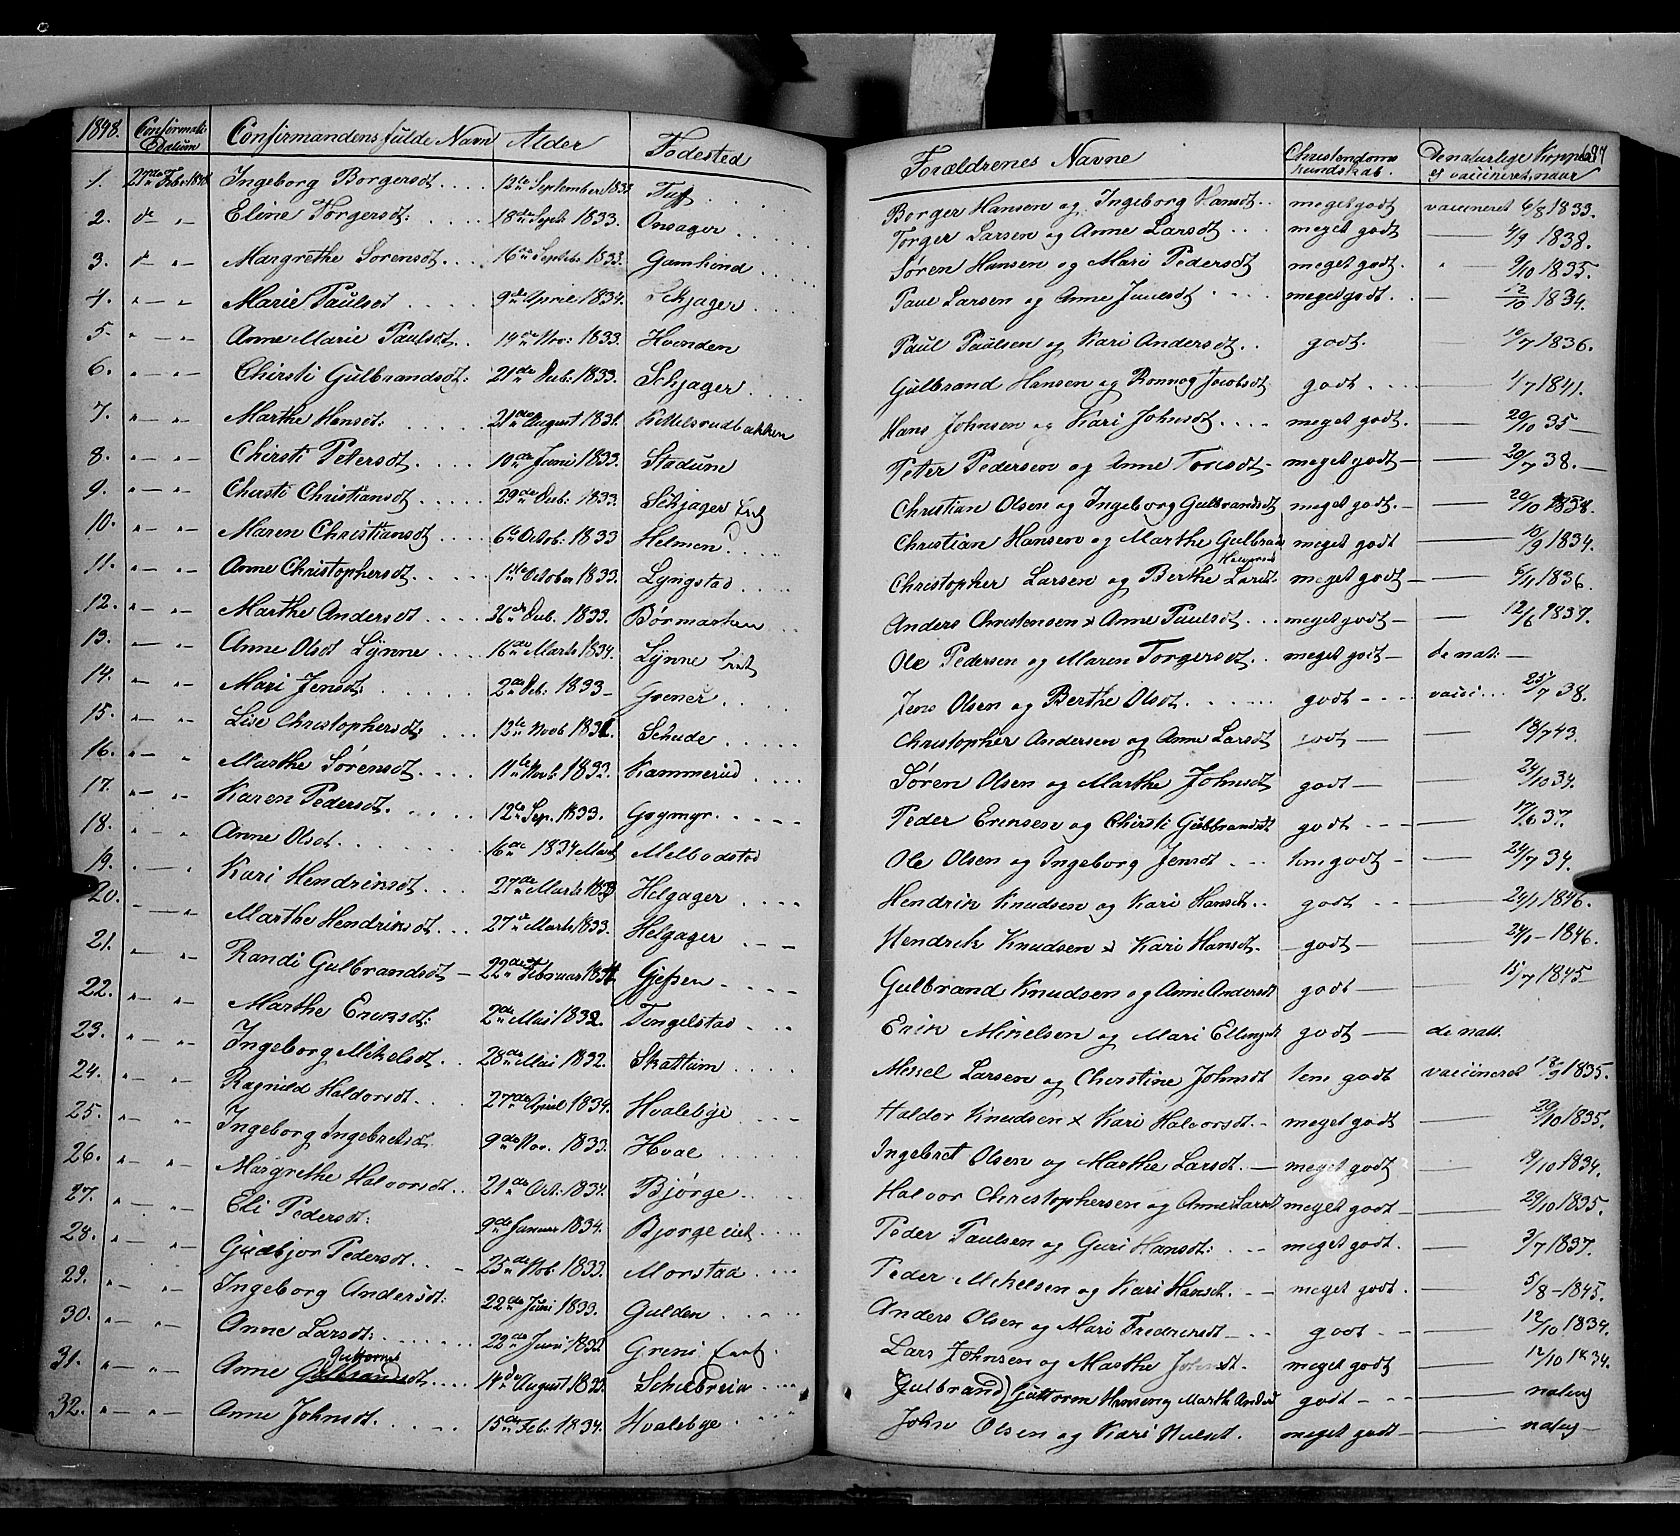 1848. Confirmat: Datum Confirmandens fulde Navn Alder Fødested Forældrenes Navne Christendoms kundskab. De naturlige Kopper el vaccineret, naar
1. Febr 1848 Ingeborg Borgersdt .... 12te September 1833 Borger Hansen og Ingeborg Hansdt .. meget godt vaccineret 6/8 1833.
2. do " Eline Torgersdt: .... 18de Sept: 1833. Onsager .... Torger Larsen og Anne Larsdt ... meget godt — 4/9 1838.
3. d— " Margrethe Sørensdt .... 16de Septb: 1833. Gamkind .... Søren Hansen og Mari Pedersdt meget godt. " — 9/10 1835.
4. " — " Marie Paulsdt .... 9de April 1834. Schjager .... Paul Larsen og Anne Juulsdt .... meget godt. — 12/10 1834.
5. " — " Anne Marie Paulsdt .. 19de Nov: 1833. Hvinden Paul Paulsen og Kari Andersdt .. godt. — 10/7 1836.
6. " — " Chirsti Gulbrandsdt: 21de 1833. Schjager .... Gulbrand Hansen og Ronnog Jacobsdt godt .... — 1/7 1841.
7. " — " Marthe Hansdt: .... 21de August 1831. Kittelsrudbakken Hans Johnsen og Kari Johnsdt .... meget godt. — 20/10 35 —
8. " — " Chirsti Petersdt .... 10de Juni 1833. Stadum Peter Pedersen og Anne Toresdt — meget godt — 20/7 38. —
9. " — " Chirsti Christiansdt .... 29de 1833. Schjager Christian Olsen og Ingeborg Gulbrandsdt meget godt. — 20/10 1838.
10. " — " Maren Christiansdt .... 6te Octob. 1833 Helmen .... Christian Hansen og Marthe Gulbrands meget godt — 18/9 1834.
11. " — " Anne Christophersdt .... 1ste October 1833. Lyngstad .... Christopher Larsen og Berthe Larsdt. meget godt — 6/11 1836.
12. " — " Marthe Andersdt .... 26de 1833. Bórmarken ... Anders Christensen x Anne Paulsdt ... meget godt — 12/6 1837.
13. " — " Anne Olsdt Lynne .... 16de Marts 1834. Lynne Ole Pedersen og Maren Torgersdt .. meget godt — de nat: —
14. " — " Mari Jensdt: .... 2de 1833 — .... Jens Olsen og Berthe Olsdt ..... godt — — vacci ... 25/7 38.
15. " — " Lise Christophersdt .... 12te Novb 183 Schude .... Christopher Andersen og Anne Larsdt godt — — 18/7 43.
16. " — " Marthe Sørensdt .... 11te Novb. 1832. Kammerud .... Søren Olsen og Marthe Johnsdt godt — — 24/10 34.
17. " — " Karen Pedersdt. .... 12te Sep. 1833. Gogmyr .... Peder Ericsen og Chirsti Gulbrandsdt godt — — — 17/6 37.
18. " " Anne Olsdt ..... 16de 1834 Mart Melbostad Ole Olsen og Ingeborg Jensdt ... temgodt — — 24/7 34.
19. " — " Kari Hendriksdt ... 27de Marts 1833 Helgager .... Hendrik Knudsen og Kari Hansdt .. godt — — — 24/1 1846.
20. — " Marthe Hendriksdt .. 27de Marts 1833. Helgager — — Hendrik Knudsen x Kari Hansdt. — godt — — 24/1 — 1846.
21. " — " Randi Gulbrandsdt — 22de Februar Gjefsen .... Gulbrand Knudsen og Anne Andersdt godt — — 15/7 1845
22. " — " Marthe Ericsdt: 2de Mai 1832. Tingelstad ... Erik Mikelsen og Mari Ellingsdt godt — de natt.
23. " — " Ingeborg Mikelsdt .. 28de Mai 1832. Skattum .... Mikkel Larsen og Christine Johnsdt tem godt vaccineret 12/9 1835.
24. " — " Ragnild Haldorsdt .... 27de April 1834. Hvalebye .... Haldor Knudsen x Kari Halvorsdt. — meget godt — 20/10 1835.
25. " — " Ingeborg Ingebretsdt 9de Nov. 1833. Hval .... Ingebret Olsen og Marthe Larsdt. — meget godt — 9/10 1834.
26. " — " Margrethe Halvorsdt .. 21de Oct: 1834. Bjørge .... Halvor Christophersen og Anne Larsdt meget godt — — 29/10 1835.
27. " — " Eli Pedersdt: 9de Januar 1834. Bjørge eiet .... Peder Paulsen og Guri Hansdt: ... meget godt. — 3/7 1837.
28. " — " Gudbjor Pedersdt .. 25de Nov. 1833. Morstad .... Peder Mikelsen og Kari Hansdt. — — meget godt. — 5/8 — 1845.
29. " — " Ingeborg Andersdt: 22de Juni 1833. Gulden .... Anders Olsen og Mari Fredricsdt — — godt — — 12/10 1834.
30. " — " Anne Larsdt: .... 22de Juni 1832 Greni Lars Johnsen og Marthe Johnsdt. meget godt — 12/10 1834.
31. " — " Anne Guttorms Gulbrandsdt .... 14de August 1833. Schiebreia .... Gulbrand) Guttorm Hansen og Marth Anders godt — — — naturlig
32. " — " Anne Johnsdt. .... 15de Feb: 1834. Hvalebye .... John Olsen og Kari Nielsdt. meget godt — — naturlig —